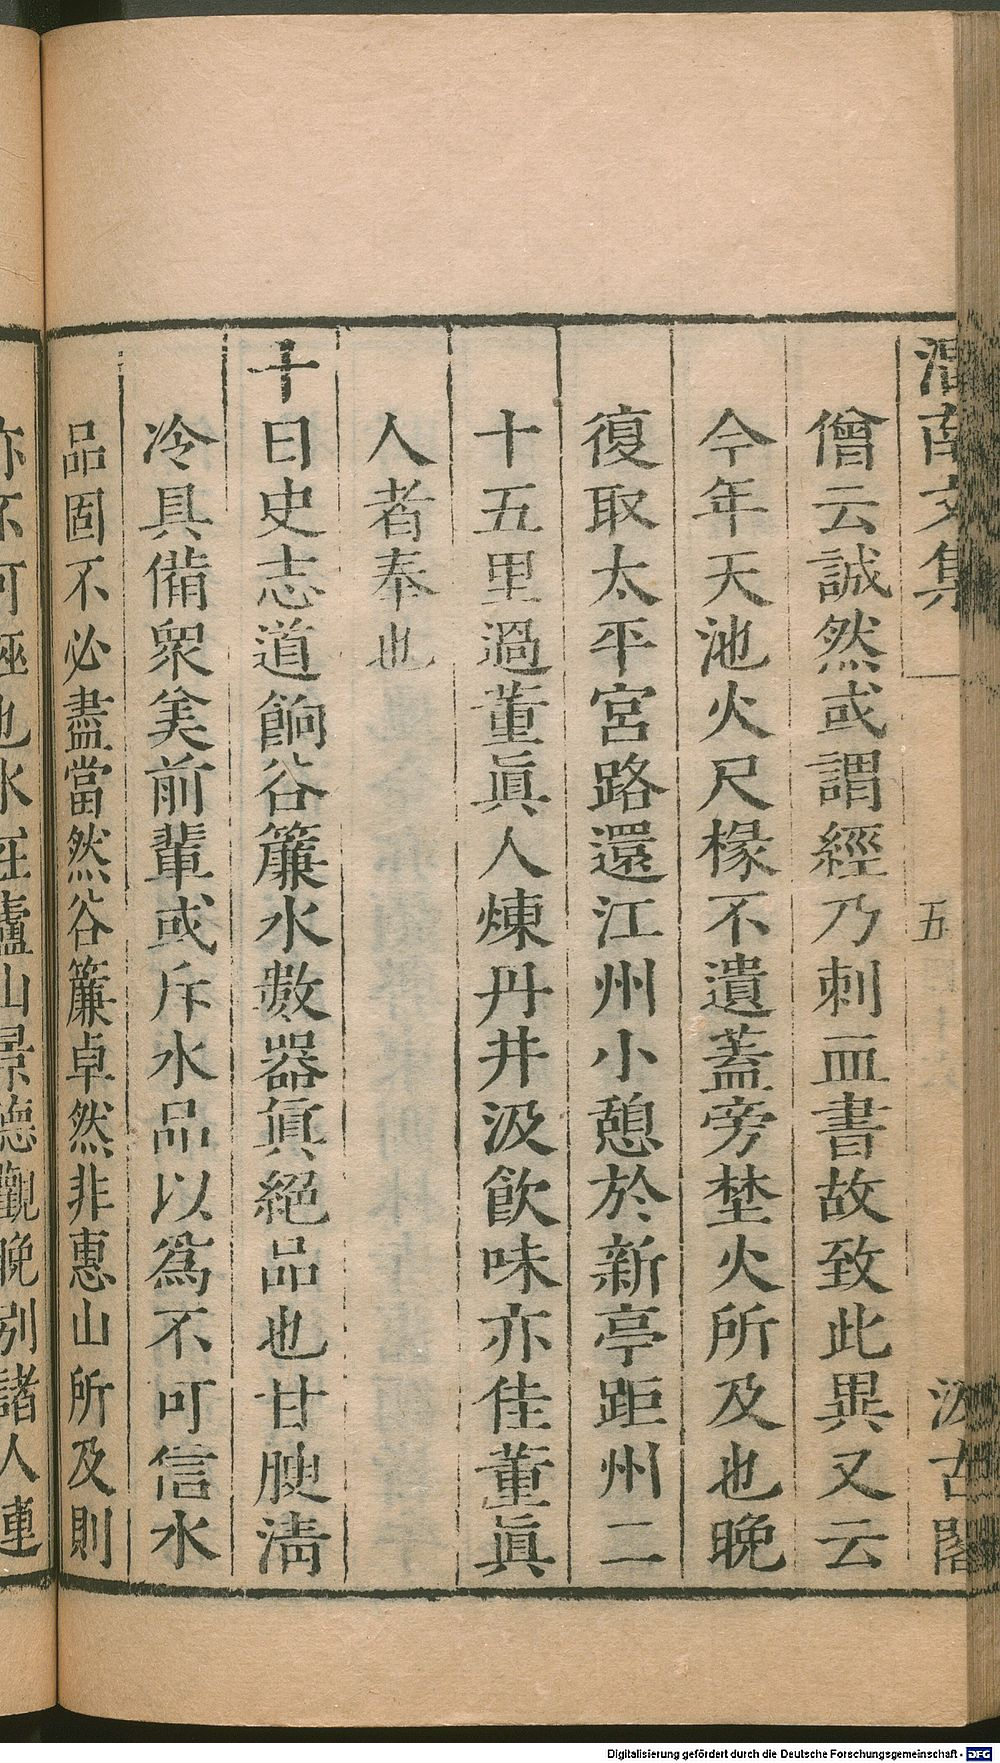 渭南文集 五 汲古閣
僧云誠然或謂經乃刺血書故致此異又云
今年天池火尺椽不遺蓋旁埜火所及也晚
復取太平宮路還江州小憩於新亭距州二
十五里過董眞人煉丹井汲飲味亦佳董眞
人者奉也
十日史志道餉谷簾水數器眞絕品也甘腴淸
冷具備衆美前輩或斥水品以爲不可信水
品固不必盡當然谷簾卓然非惠山所及則
亦不可誣也水在廬山景德觀晚別諸人連
Digitalisierung gefördert durch die Deutsche Forschungsgemeinschaft - DFG